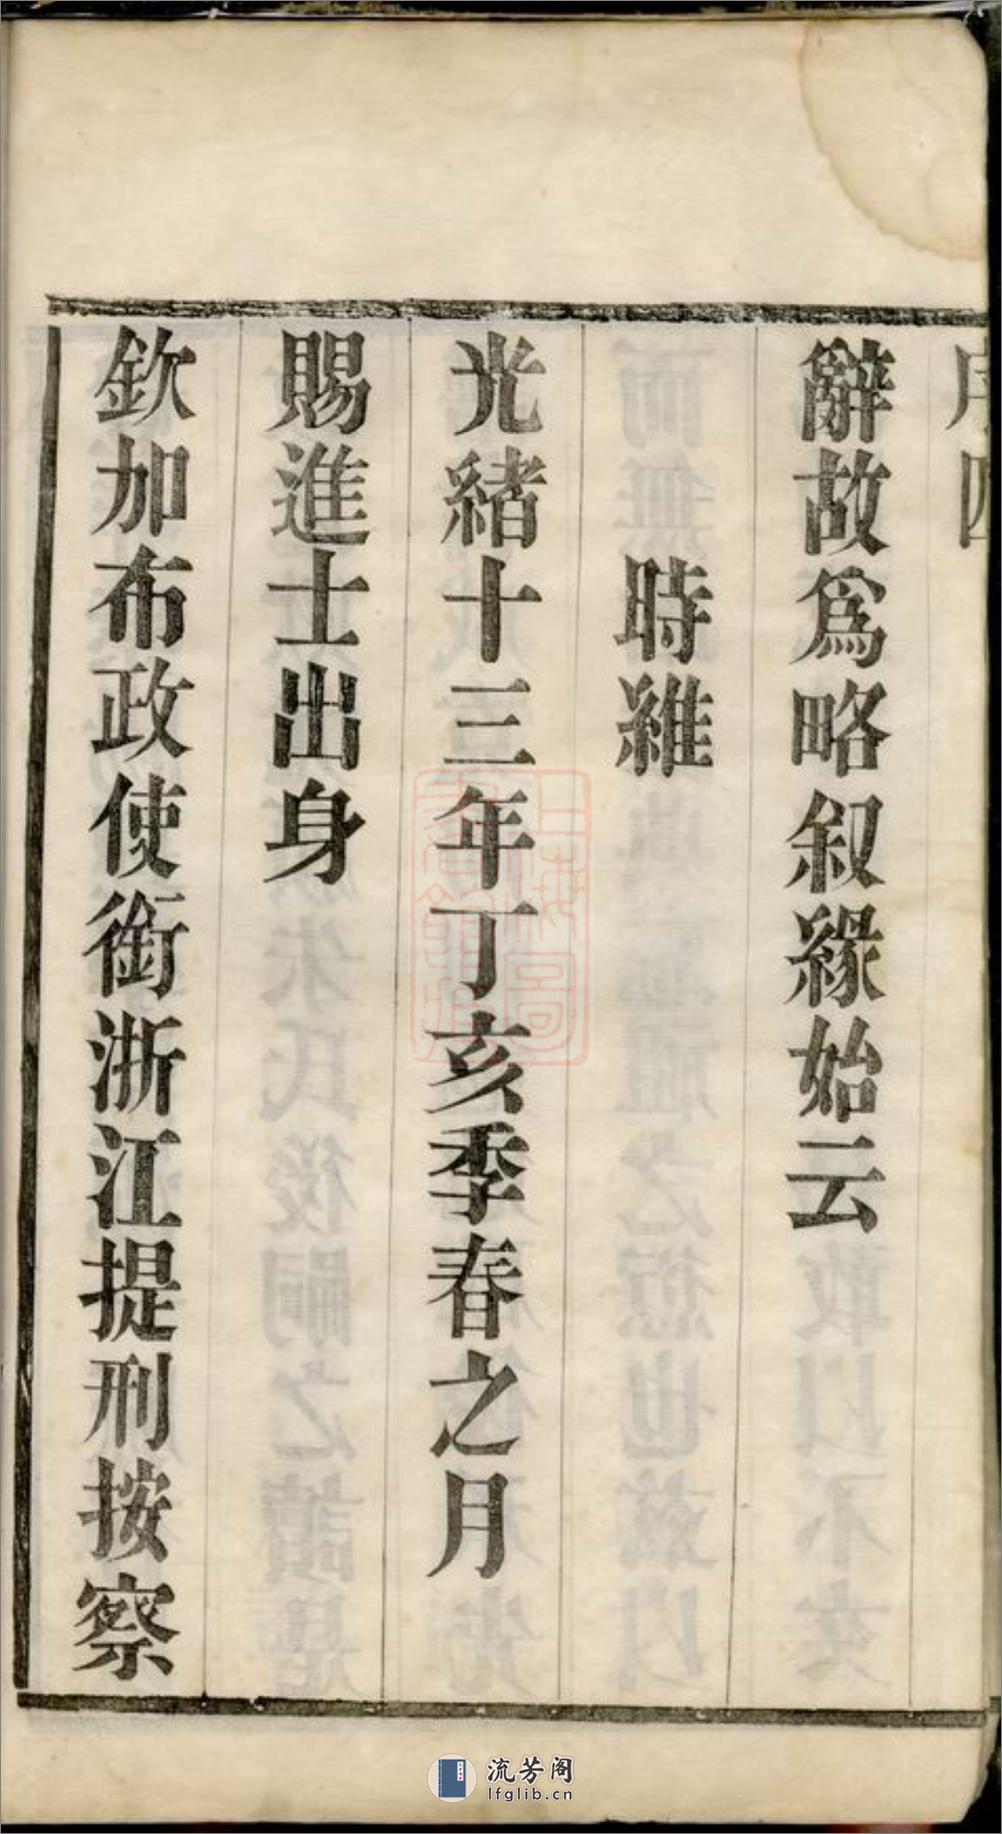 序四
辭故爲略叙緣始云
時維
光緒十三年丁亥季春之月
賜進士出身
欽加布政使銜浙江提刑按察
上海圖
書館藏
流芳阁
lfglib.cn